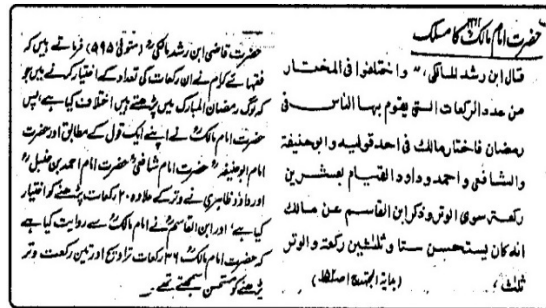 حضرت امام مالکؒ کا مسلک
قال ابن رشد المالکیؒ، "واختلفوا فی المختار
من عدد الرکعات التی یقوم بہا الناس فی
رمضان فاختار مالک فی احد قولیہ وابوحنیفۃ
والشافعی واحمد وداود القیام بعشرین
رکعۃ سوی الوتر وذکر ابن القاسم عن مالک
انہ کان یستحسن ستا وثلثین رکعۃ والوتر
ثلث،
حضرت قاضی ابن رشد مالکیؒ (متوفی ۵۹۵) فرماتے ہیں کہ
فقہائے کرام نے ان رکعات کی تعداد کے اختیار کرنے میں جو
کہ لوگ رمضان المبارک میں پڑھتے ہیں اختلاف کیا ہے، پس
حضرت امام مالکؒ نے اپنے ایک قول کے مطابق اور حضرت
امام ابوحنیفہؒ حضرت امام شافعیؒ حضرت امام احمد بن حنبلؒ
اور داؤد ظاہری نے وتر کے علاوہ ۲۰ رکعات پڑھنے کو اختیار
کیا ہے، اور ابن القاسمؒ نے امام مالکؒ سے روایت کیا ہے
کہ حضرت امام مالکؒ ۳۶ رکعات تراویح اور تین رکعت وتر
پڑھنے کو مستحسن سمجھتے تھے۔